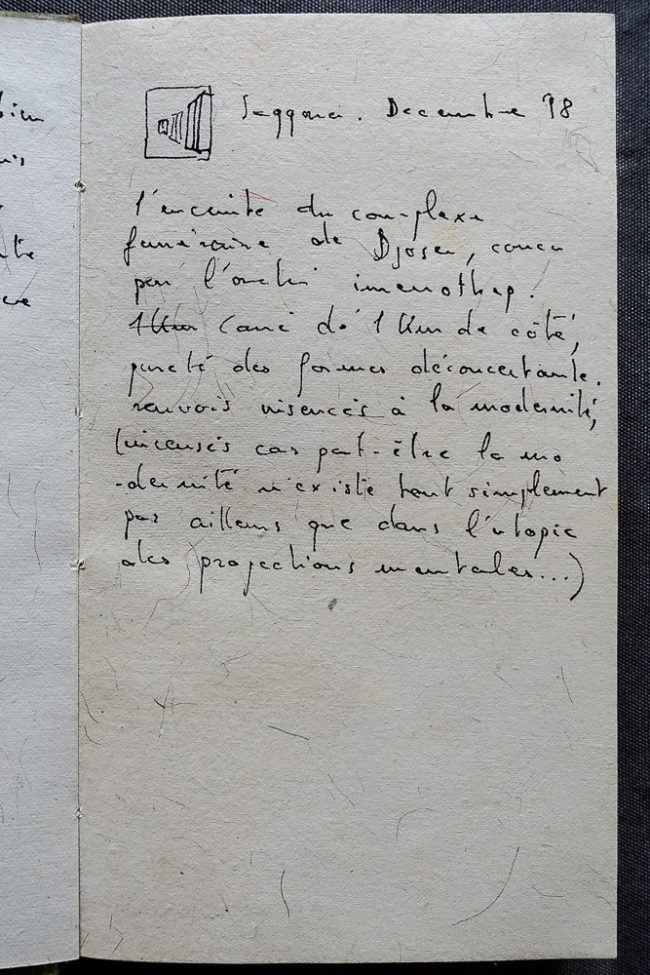 Saqqara. Decembre 98
l'enceinte du complexe
funéraire de Djoser, concu
par l'archi imenothep.
1 Km Carré de 1 Km de côté,
pureté des formes déconcertante.
renvois insensés à la modernité,
(insensés car peut-être la mo
-dernité n'existe tout simplement
pas ailleurs que dans l'utopie
des projections mentales...)